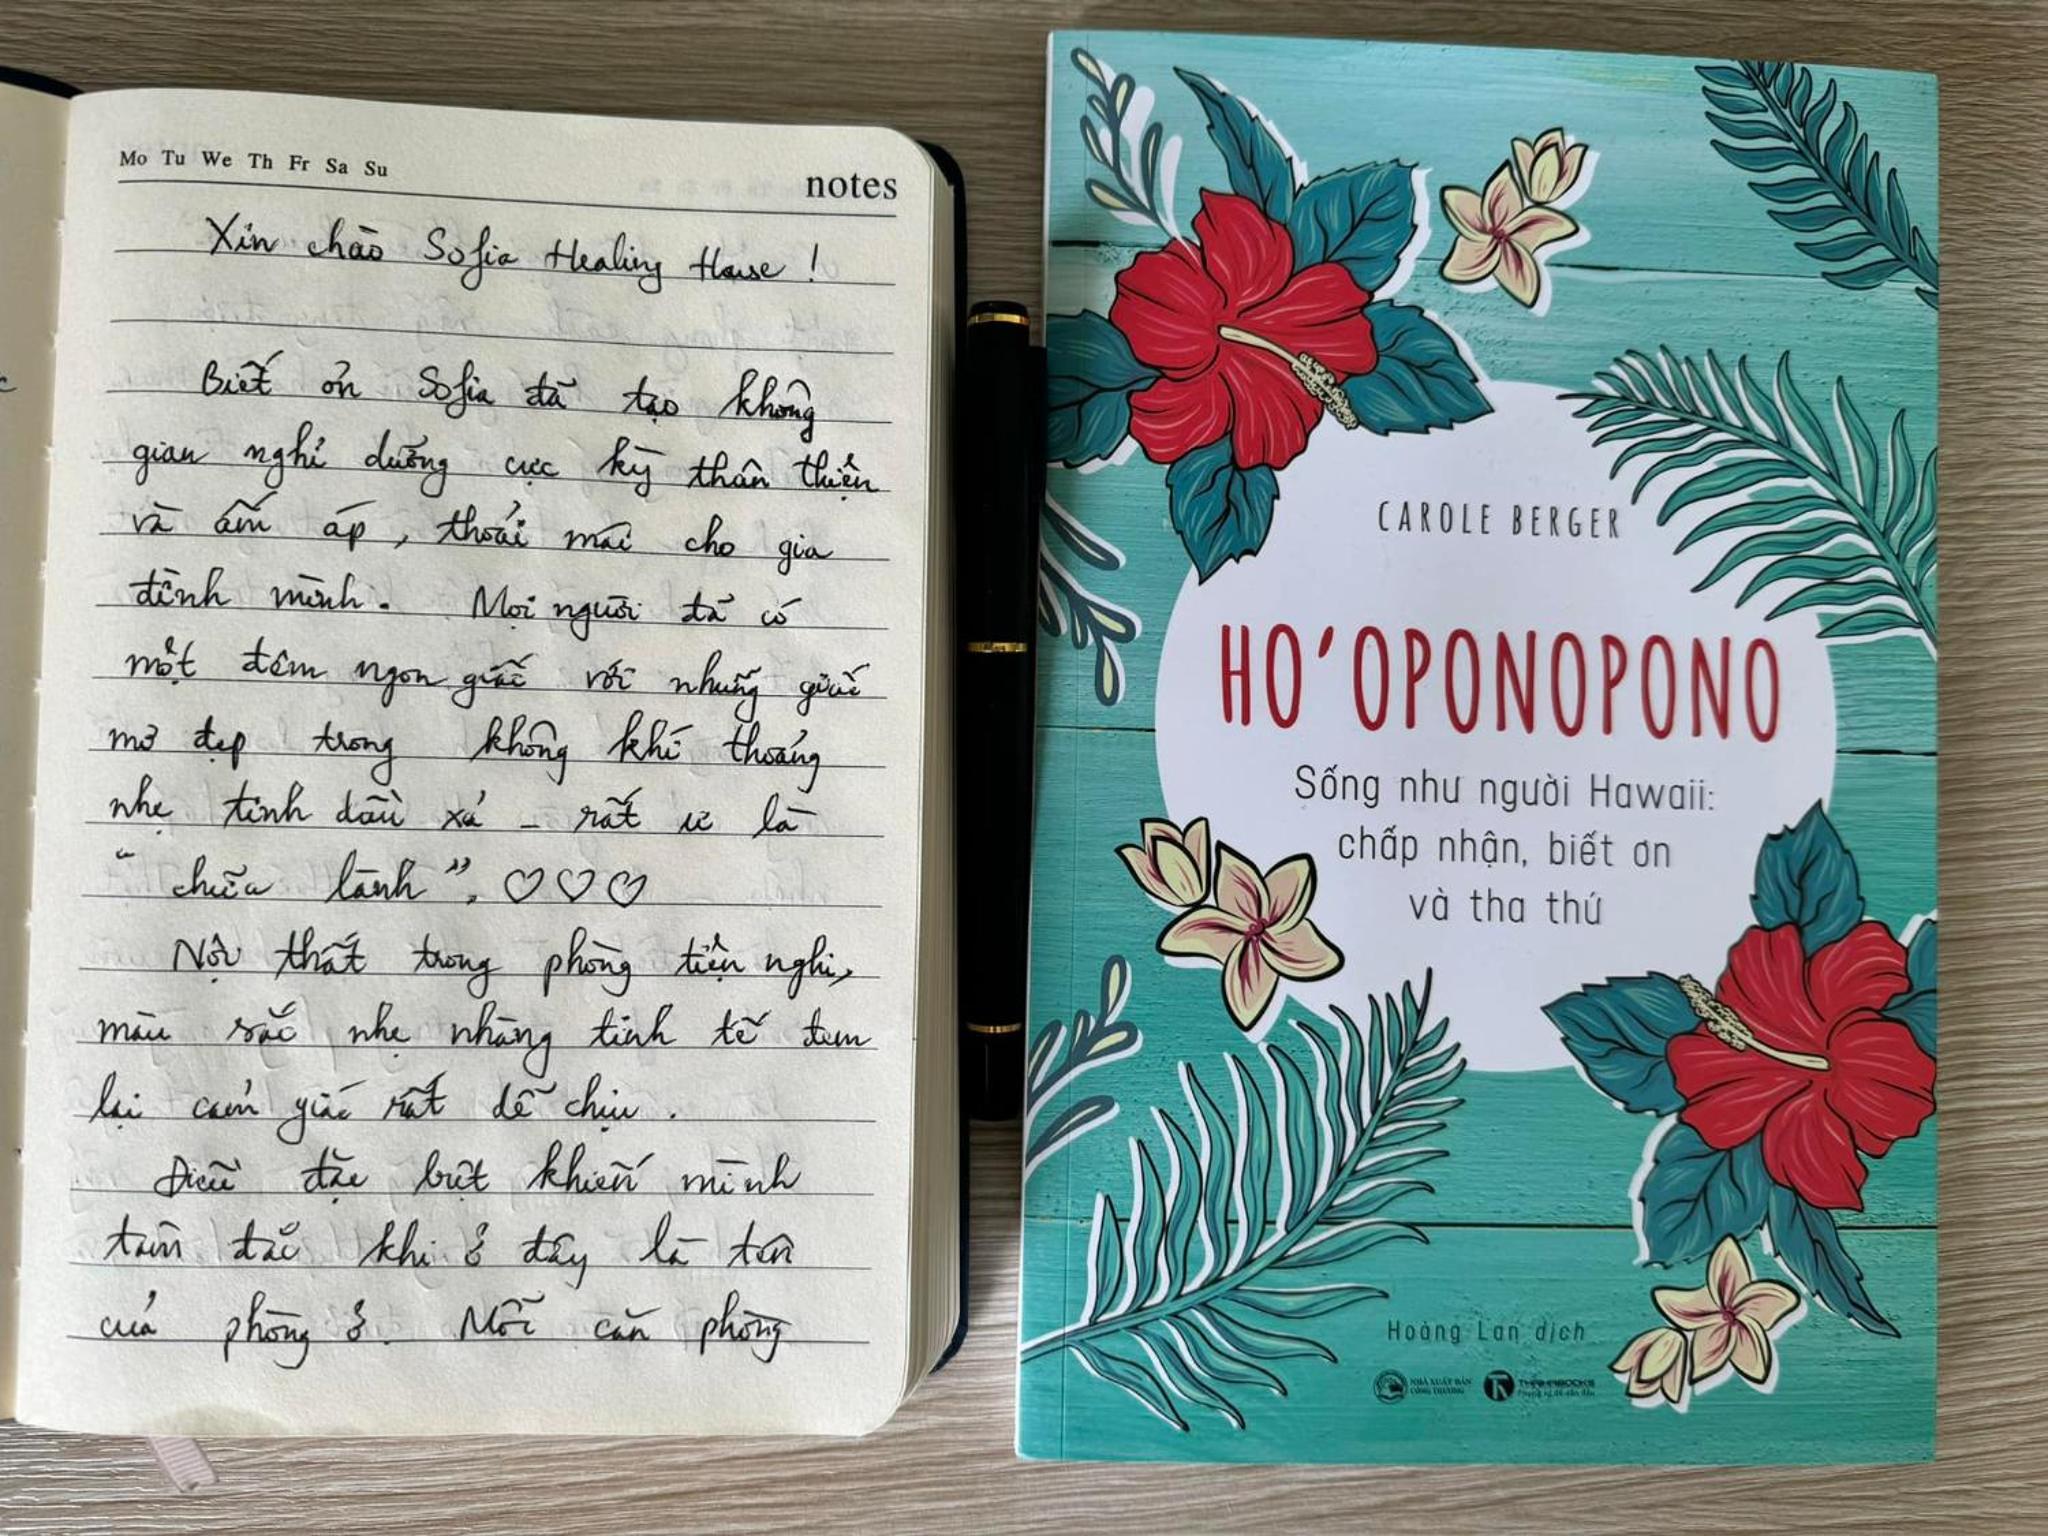 Mo Tu We Th Fr Sa Su
notes
Xin chào Sofia Healing House !
Biết ơn Sofia đã tạo không
gian nghỉ dưỡng cực kỳ thân thiện
và ấm áp, thoải mái cho gia
đình mình. Mọi người đã có
một đêm ngon giấc với những giấc
mơ đẹp trong không khí thoảng
nhẹ tinh dầu xả - rất ư là
"chữa lành". ♡♡♡
Nội thất trong phòng tiện nghi,
màu sắc nhẹ nhàng tinh tế đem
lại cảm giác rất dễ chịu.
Điều đặc biệt khiến mình
tâm đắc khi ở đây là tên
của phòng ở. Mỗi căn phòng
CAROLE BERGER
HO'OPONOPONO
Sống như người Hawaii:
chấp nhận, biết ơn
và tha thứ
Hoàng Lan dịch
NHÀ XUẤT BẢN
CÔNG THƯƠNG
THAIHABOOKS